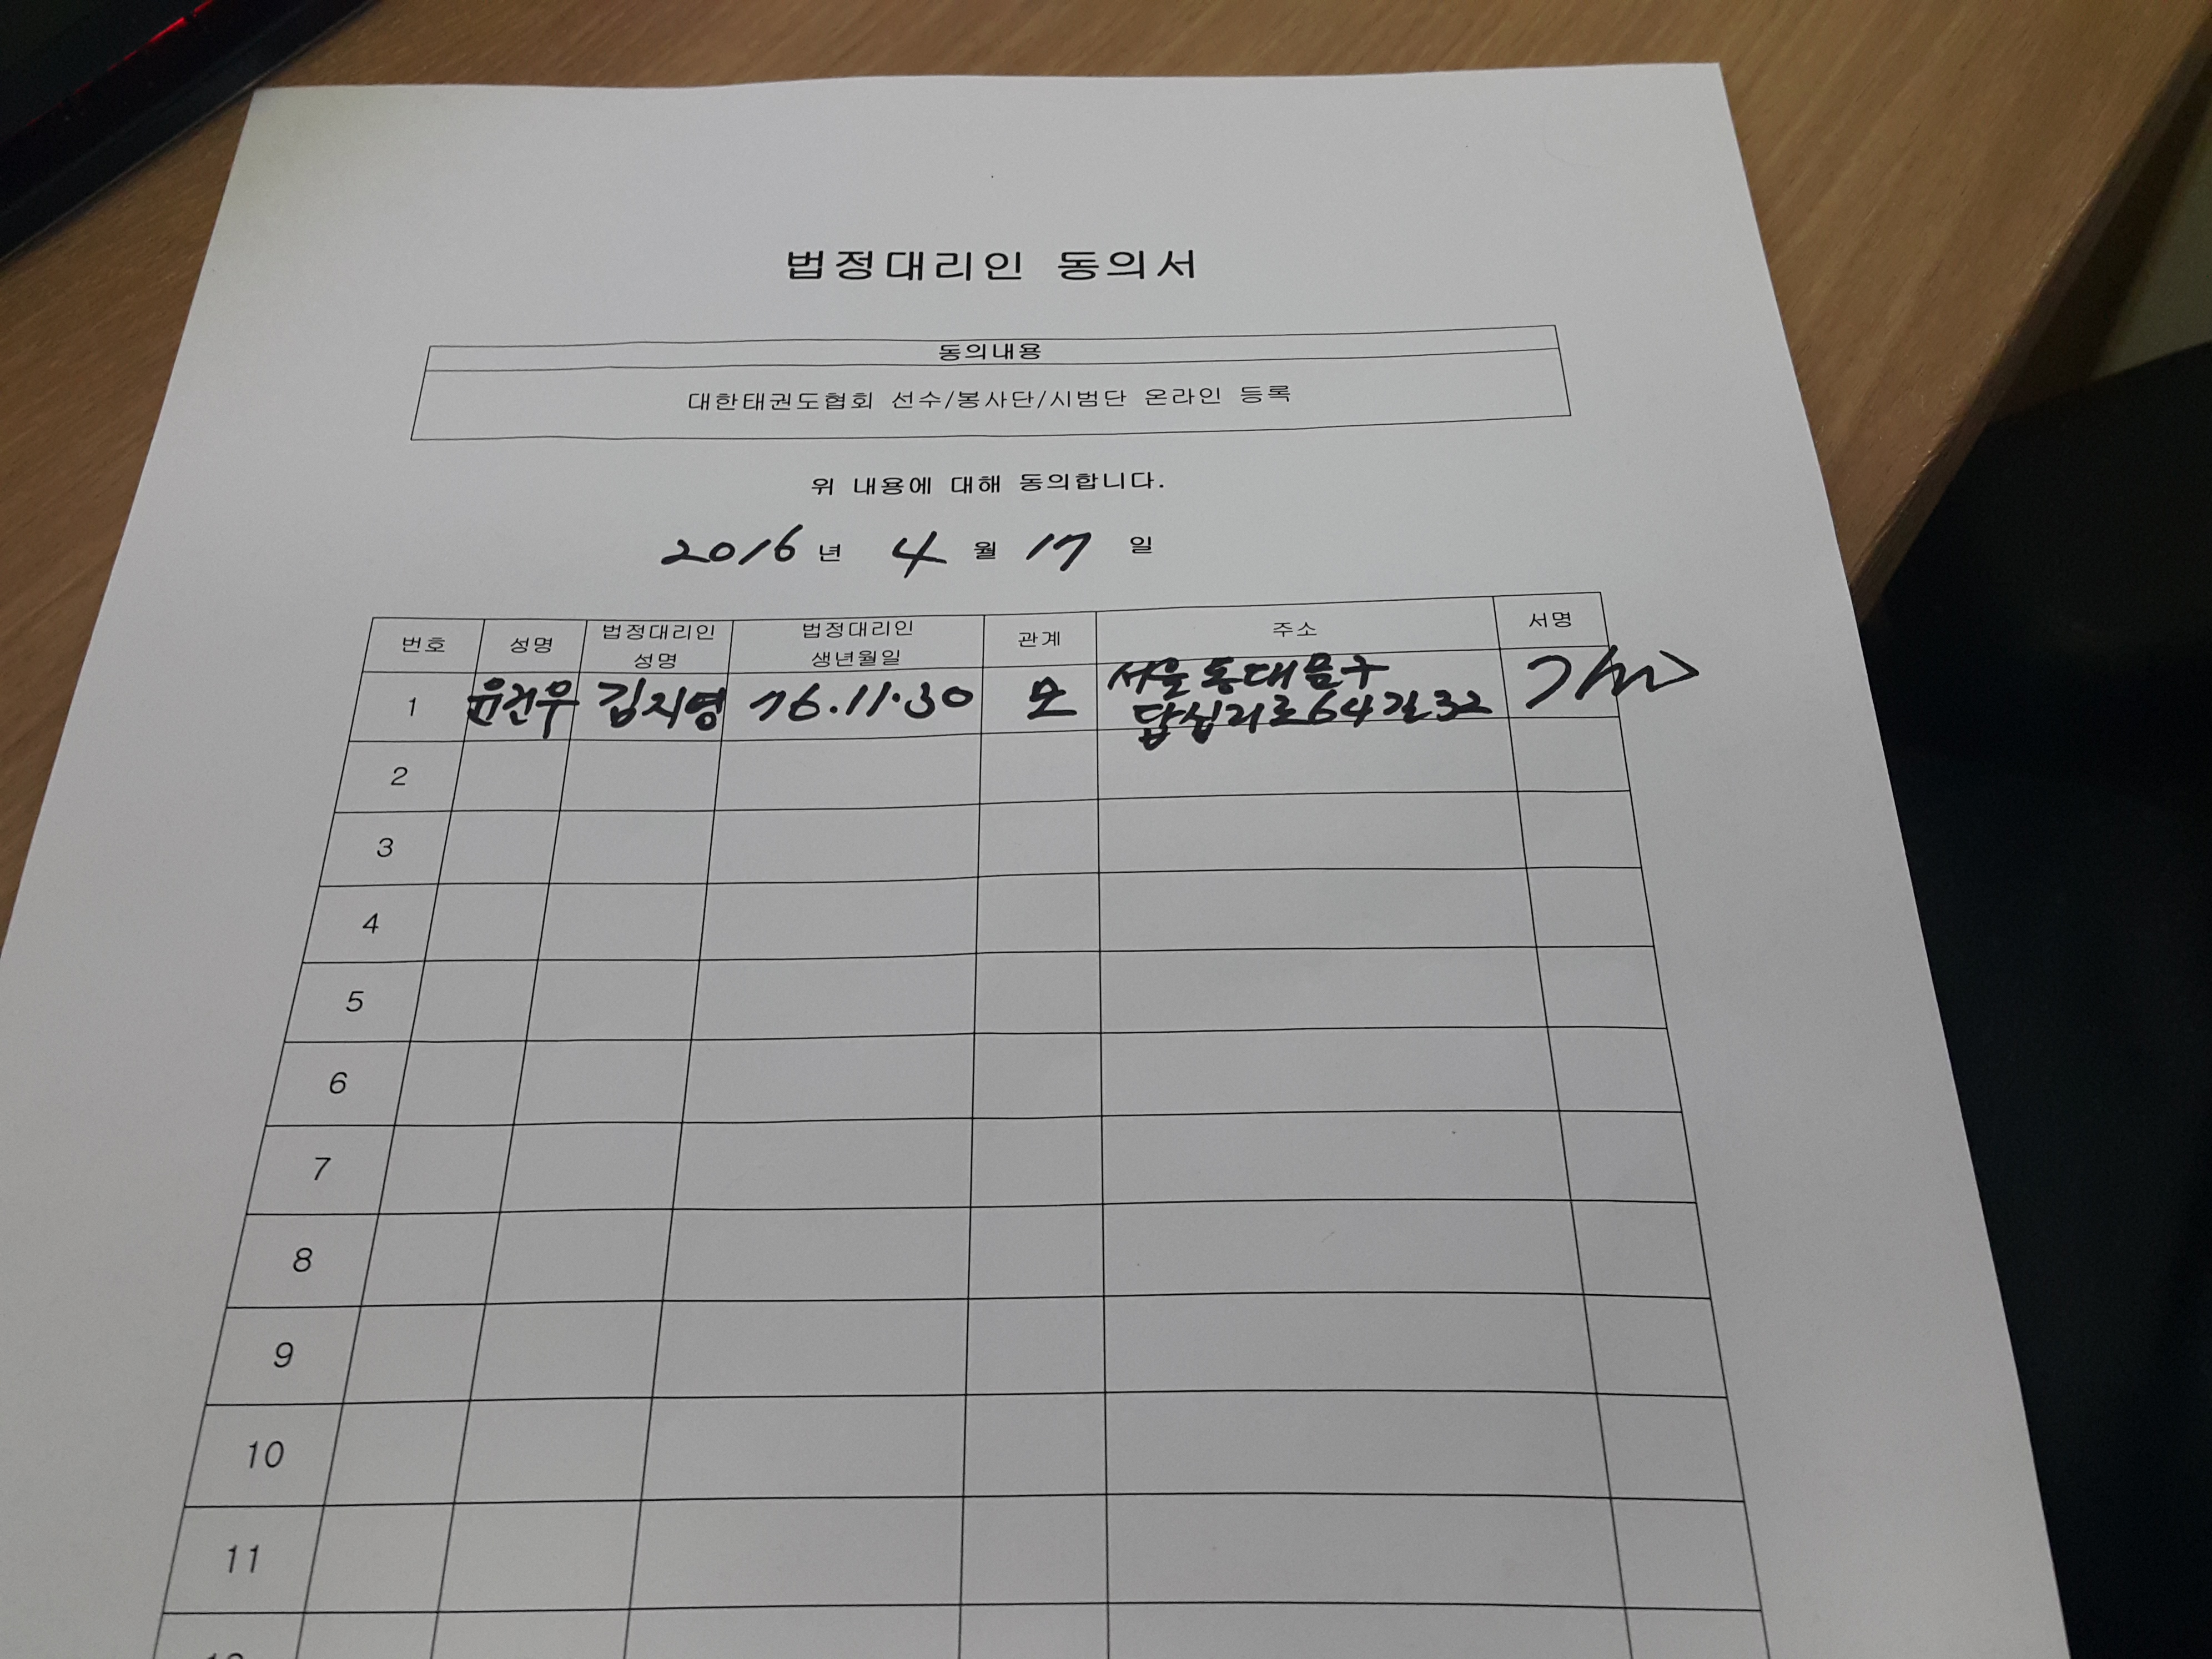 법정대리인 동의서
동의내용
대한태권도협회 선수/봉사단/시범단 온라인 등록
위 내용에 대해 동의합니다.
2016 년 4 월 17 일
번호 성명 법정대리인 성명 법정대리인 생년월일 관계 주소 서명
1 윤건우 김지영 76.11.30 모 서울 동대문구
답십리로64길32
2
3
4
5
6
7
8
9
10
11